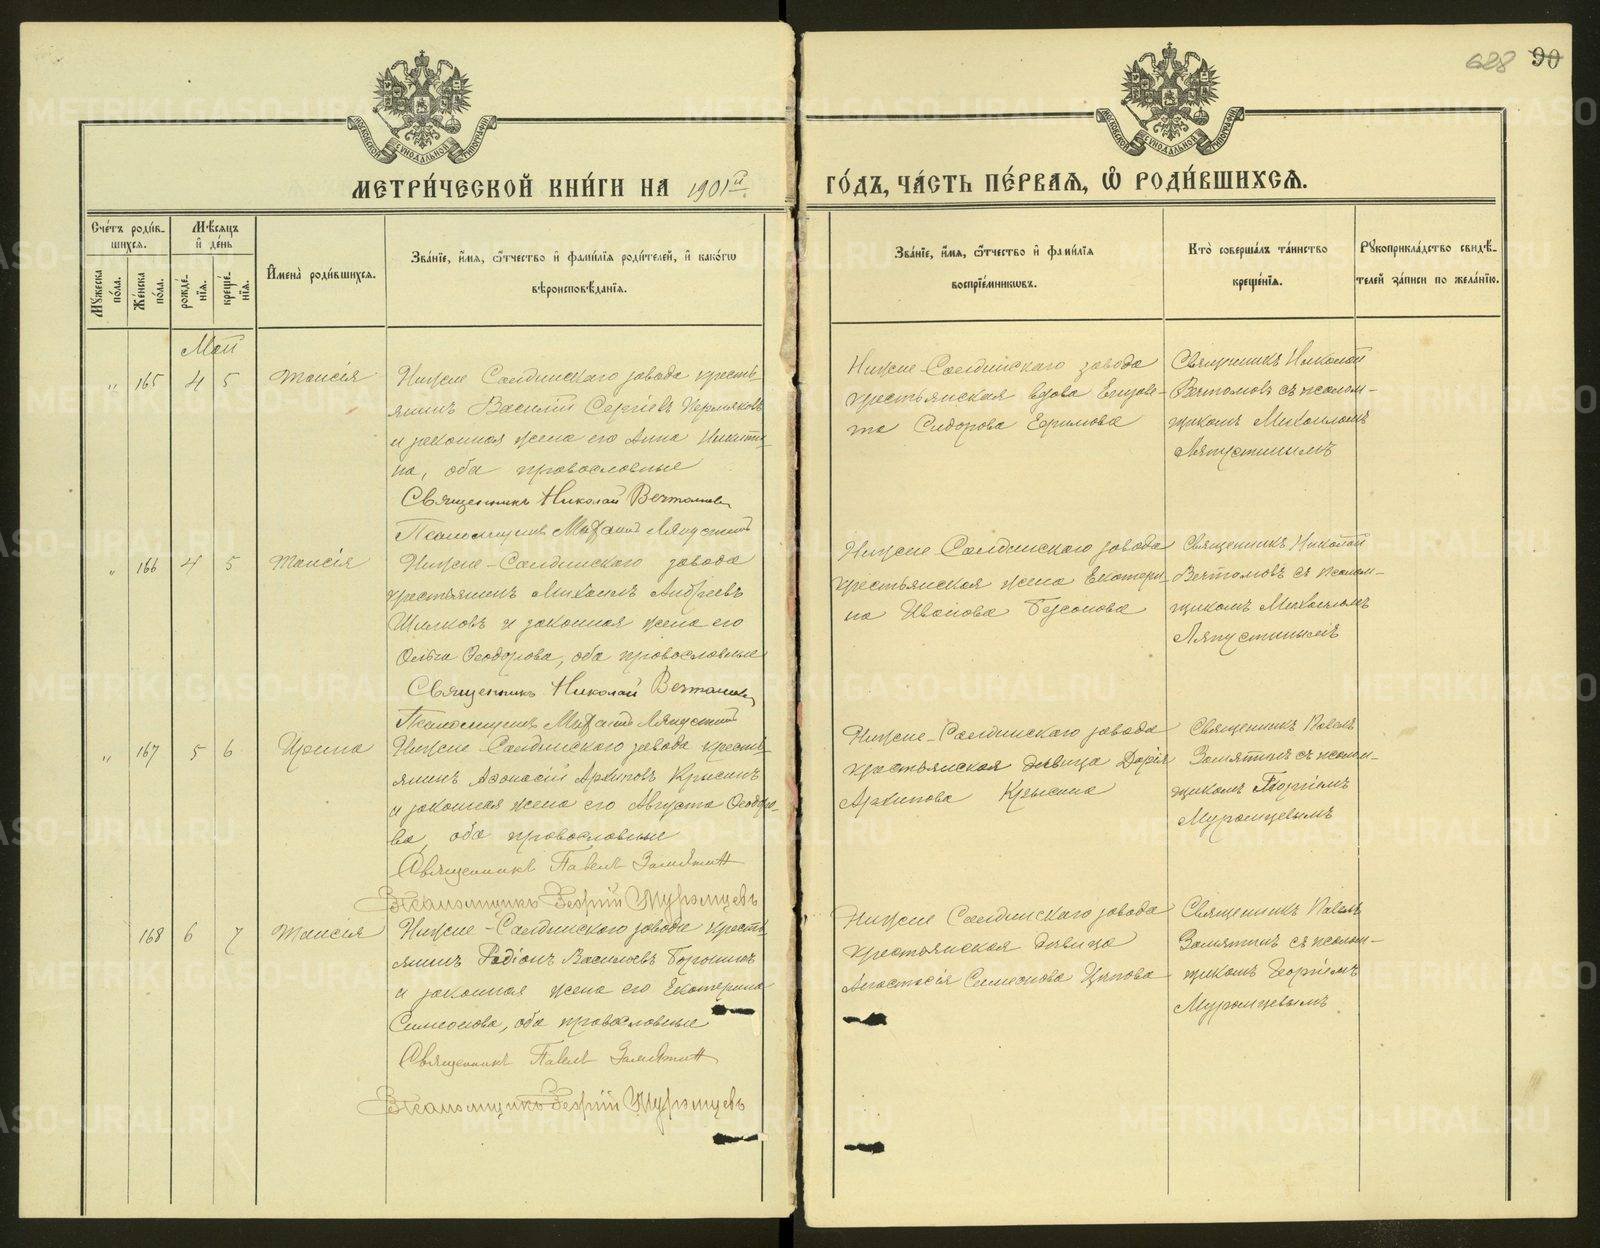 628 90
МОСКОВСКОЙ СѴНОДАЛЬНОЙ ТИПОГРАФІИ
МОСКОВСКОЙ СѴНОДАЛЬНОЙ ТИПОГРАФІИ
МЕТРИ́ЧЕСКОЙ КНИ́ГИ НА 1901й ГО́ДЪ, ЧА́СТЬ ПЕ́РВАѦ, Ѡ РОДИ́ВШИХСѦ.
Сче́тъ роди́в-
шихсѧ.
Мꙋжеска по́ла.
Же́нска по́ла.
Мѣ́сѧцъ
и де́нь
рожде́-
нїѧ.
креще́-
нїѧ.
Имена̀ роди́вшихсѧ.
Зва́нїе, и́мѧ, ѻ́тчество и фами́лїѧ роди́телей, и како́гѡ
вѣроисповѣ́данїѧ.
Зва́нїе, и́мѧ, ѻ́тчество и фами́лїѧ
воспрїе́мникѡвъ.
Кто̀ соверша́лъ та́инство
креще́нїѧ.
Рꙋкоприкла́дство свидѣ́-
телей за́писи по жела́нїю.
Май
" 165 4 5 Таисія
Нижне Салдинскаго завода кресть-
янинъ Василій Сергіевъ Пермяковъ
и законная жена его Анна Никити-
на, оба православные
Священникъ Николай Вечтомовъ
Псаломщикъ Михаилъ Ляпустинъ
Нижне-Салдинскаго завода
крестьянская вдова Елизаве-
та Сидорова Ефимова
Священникъ Николай
Вечтомовъ съ псалом-
щикомъ Михаиломъ
Ляпустинымъ
" 166 4 5 Таисія
Нижне-Салдинскаго завода
крестьянинъ Михаилъ Андреевъ
Шилковъ и законная жена его
Ольга Ѳеодорова, оба православные
Священникъ Николай Вечтомовъ
Псаломщикъ Михаилъ Ляпустинъ
Нижне Салдинскаго завода
крестьянская жена Екатери-
на Иванова
Священникъ Николай
Вечтомовъ съ псалом-
щикомъ Михаиломъ
Ляпустинымъ
" 167 5 6 Ирина
Нижне-Салдинскаго завода кресть-
янинъ Аѳанасій Архиповъ Крысинъ
и законная жена его Августа Ѳеодоро-
ва, оба православные
Священникъ Павелъ Замятинъ
Псаломщикъ Георгій Муромцевъ
Нижне-Салдинскаго завода
крестьянская дѣвица Дарія
Архипова Крысина
Священникъ Павелъ
Замятинъ съ псалом-
щикомъ Георгіемъ
Муромцевымъ
168 6 7 Таисія
Нижне-Салдинскаго завода кресть-
янинъ Родіонъ Васильевъ
и законная жена его Екатерина
Симеонова, оба православные
Священникъ Павелъ Замятинъ
Псаломщикъ Георгій Муромцевъ
Нижне Салдинскаго завода
крестьянская дѣвица
Анастасія Симеонова
Священникъ Павелъ
Замятинъ съ псалом-
щикомъ Георгіемъ
Муромцевымъ
METRIKI.GASO-URAL.RU